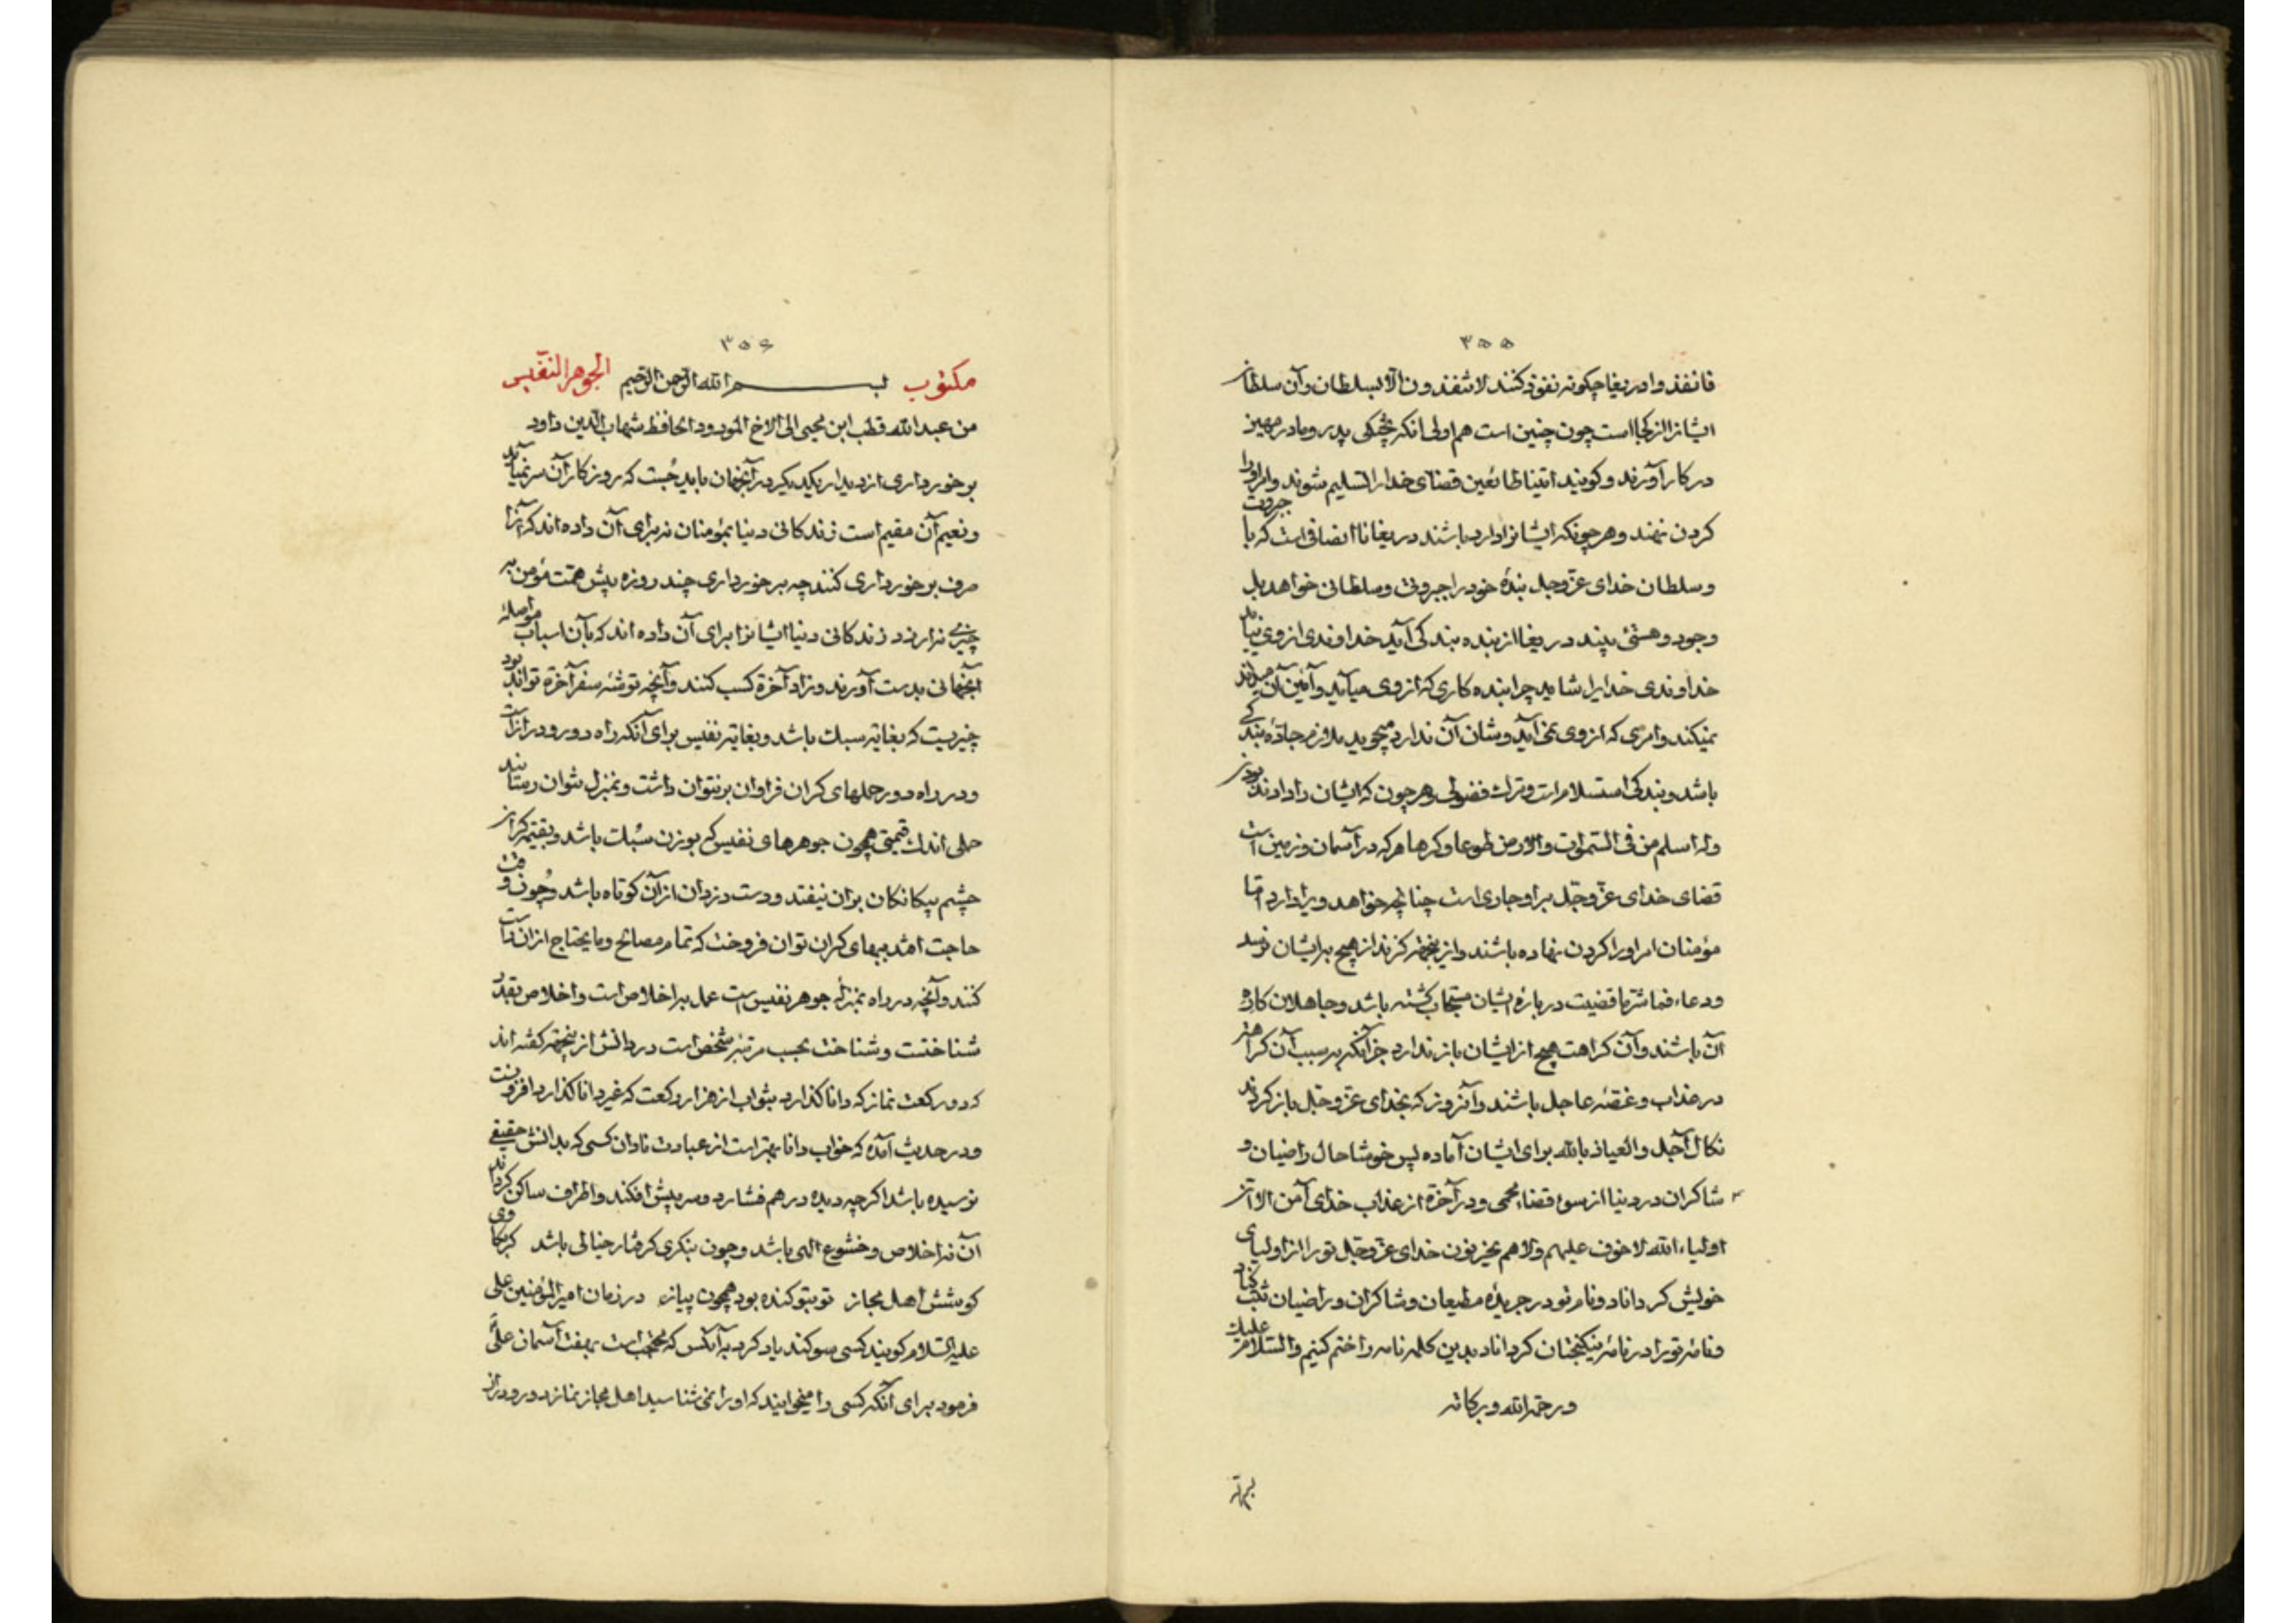 ۳۵۵
فانفذوا دریغا چکونه نفوذ کنند لا تنفذون الا بسلطان وآن سلطان
ایشانرا از کجا است چون چنین است هم اولی آنکه خشکی پدر ومادر مهین
در کار آورند و کویند اتینا طائعین قضای خدا را تسلیم شوند وامر او را
کردن نهند وهر چونکه ایشانرا دارد باشند دریغا ناانصافی است که با جبروت
وسلطان خدای عزّ وجل بندۀ خود را جبروتی وسلطانی خواهد بل
وجود وهستی بیند دریغا از بنده بندکی آید خداوندی از وی نیاید
خداوندی خدایرا شاید چرا بنده کاری که از وی میآید وآئین آن میداند
نمیکند وامری که از وی نمی آید وشان آن ندارد میجوید ملازم جادّۀ بندکی
باشد وبندکی استسلام است وترک فضولی وهر چون که ایشان را دارند بودن
وله اسلم من فی السّموات والارض طوعا وکرها هر که در آسمان وزمین است
قضای خدای عزّ وجلّ بر او جاری است چنانچه خواهد ویرا دارد امّا
مؤمنان امر او را کردن نهاده باشند واز ینجهة کزند از هیچ بر ایشان نرسد
ودعاء فما شرّ ما قضیت در بارۀ ایشان مستجاب کشته باشد وجاهلان کاره
آن باشند وآن کراهت هیچ از ایشان باز ندارد جز آنکه بر سبب آن کراهة
در عذاب وغصّۀ عاجل باشند وآنروز که بخدای عزّ وجلّ باز کردند
نکال آجل والعیاذ بالله برای ایشان آماده پس خوشا حال راضیان و
شاکران در دنیا از سوء قضاء محمی ودر آخرة از عذاب خدای آمن الا انّ
اولیاء الله لا خوف علیهم ولا هم یحزنون خدای عزّ وجلّ تو را از اولیای
خویش کرداناد ونام تو در جریدۀ مطیعان وشاکران وراضیان ثبت کناد
ونامۀ تو را در نامۀ نیکبختان کرداناد بدین کلمه نامه را ختم کنیم والسّلام علیک
ورحمة الله وبرکاته
۳۵۶
مکتوب بسم الله الرّحمن الرّحیم الجوهر النّفیس
من عبد الله قطب ابن محیی الی الاخ المودود الحافظ شهاب الدّین داود
برخورداری از دیدار یکدیکر در آنجهان باید جُست که روز کار آن سر نمیآید
ونعیم آن مقیم است زندکانی دنیا بمؤمنان نه برای آن داده اند که آنرا
صرف برخورداری کنند چه برخورداری چند روزه پیش همّت مؤمن به
چیزی نیرزد زندکانی دنیا ایشانرا برای آن داده اند که بآن اسباب مواصلۀ
آنجهانی بدست آورند وزاد آخرة کسب کنند وآنچه توشۀ سفر آخرة تواند بود
چیزیست که بغایة سبک باشد وبغایة نفیس برای آنکه راه دور ودراز است
ودر راه دور حملهای کران فراوان بر نتوان داشت وبمنزل نتوان رسانید
حملی اندک قیمتی همچون جوهرهای نفیس که بوزن سُبک باشد وبقیمة کران
چشم بیکانکان بران نیفتد ودست دزدان از آن کوتاه باشد وچون وقت
حاجت آمد ببهای کران توان فروخت که تمام مصالح وما یحتاج ازان راست
کنند وآنچه در راه بمنزلۀ جوهر نفیس است عمل بر اخلاص است واخلاص بقدر
شناختست وشناخت بحسب مرتبۀ شخص است در دانش از ینجهة کفته اند
که دو رکعت نماز که دانا کذارد بثواب از هزار رکعت که غیر دانا کذارد افزونست
ودر حدیث آمده که خواب دانا بهتر است از عبادت نادان کسی که بدانش حقیقی
نرسیده باشد اکر چه دیده در هم فشارد وسر پیش افکند واطراف ساکن کرداند
آن نه اخلاص وخشوع الهی باشد وچون بنکری کرفتار خیالی باشد کرمکاوی
کوشش اهل مجاز تو بتو کنده بود همچون پیاز، در زمان امیر المؤمنین علی
علیه السّلام کویند کسی سوکند یاد کرد به آنکس که محتجب است بهفت آسمان علیّ
فرمود برای آنکه کسی را میخوانید که او را نمی شناسید اهل مجاز نماز دور ودراز